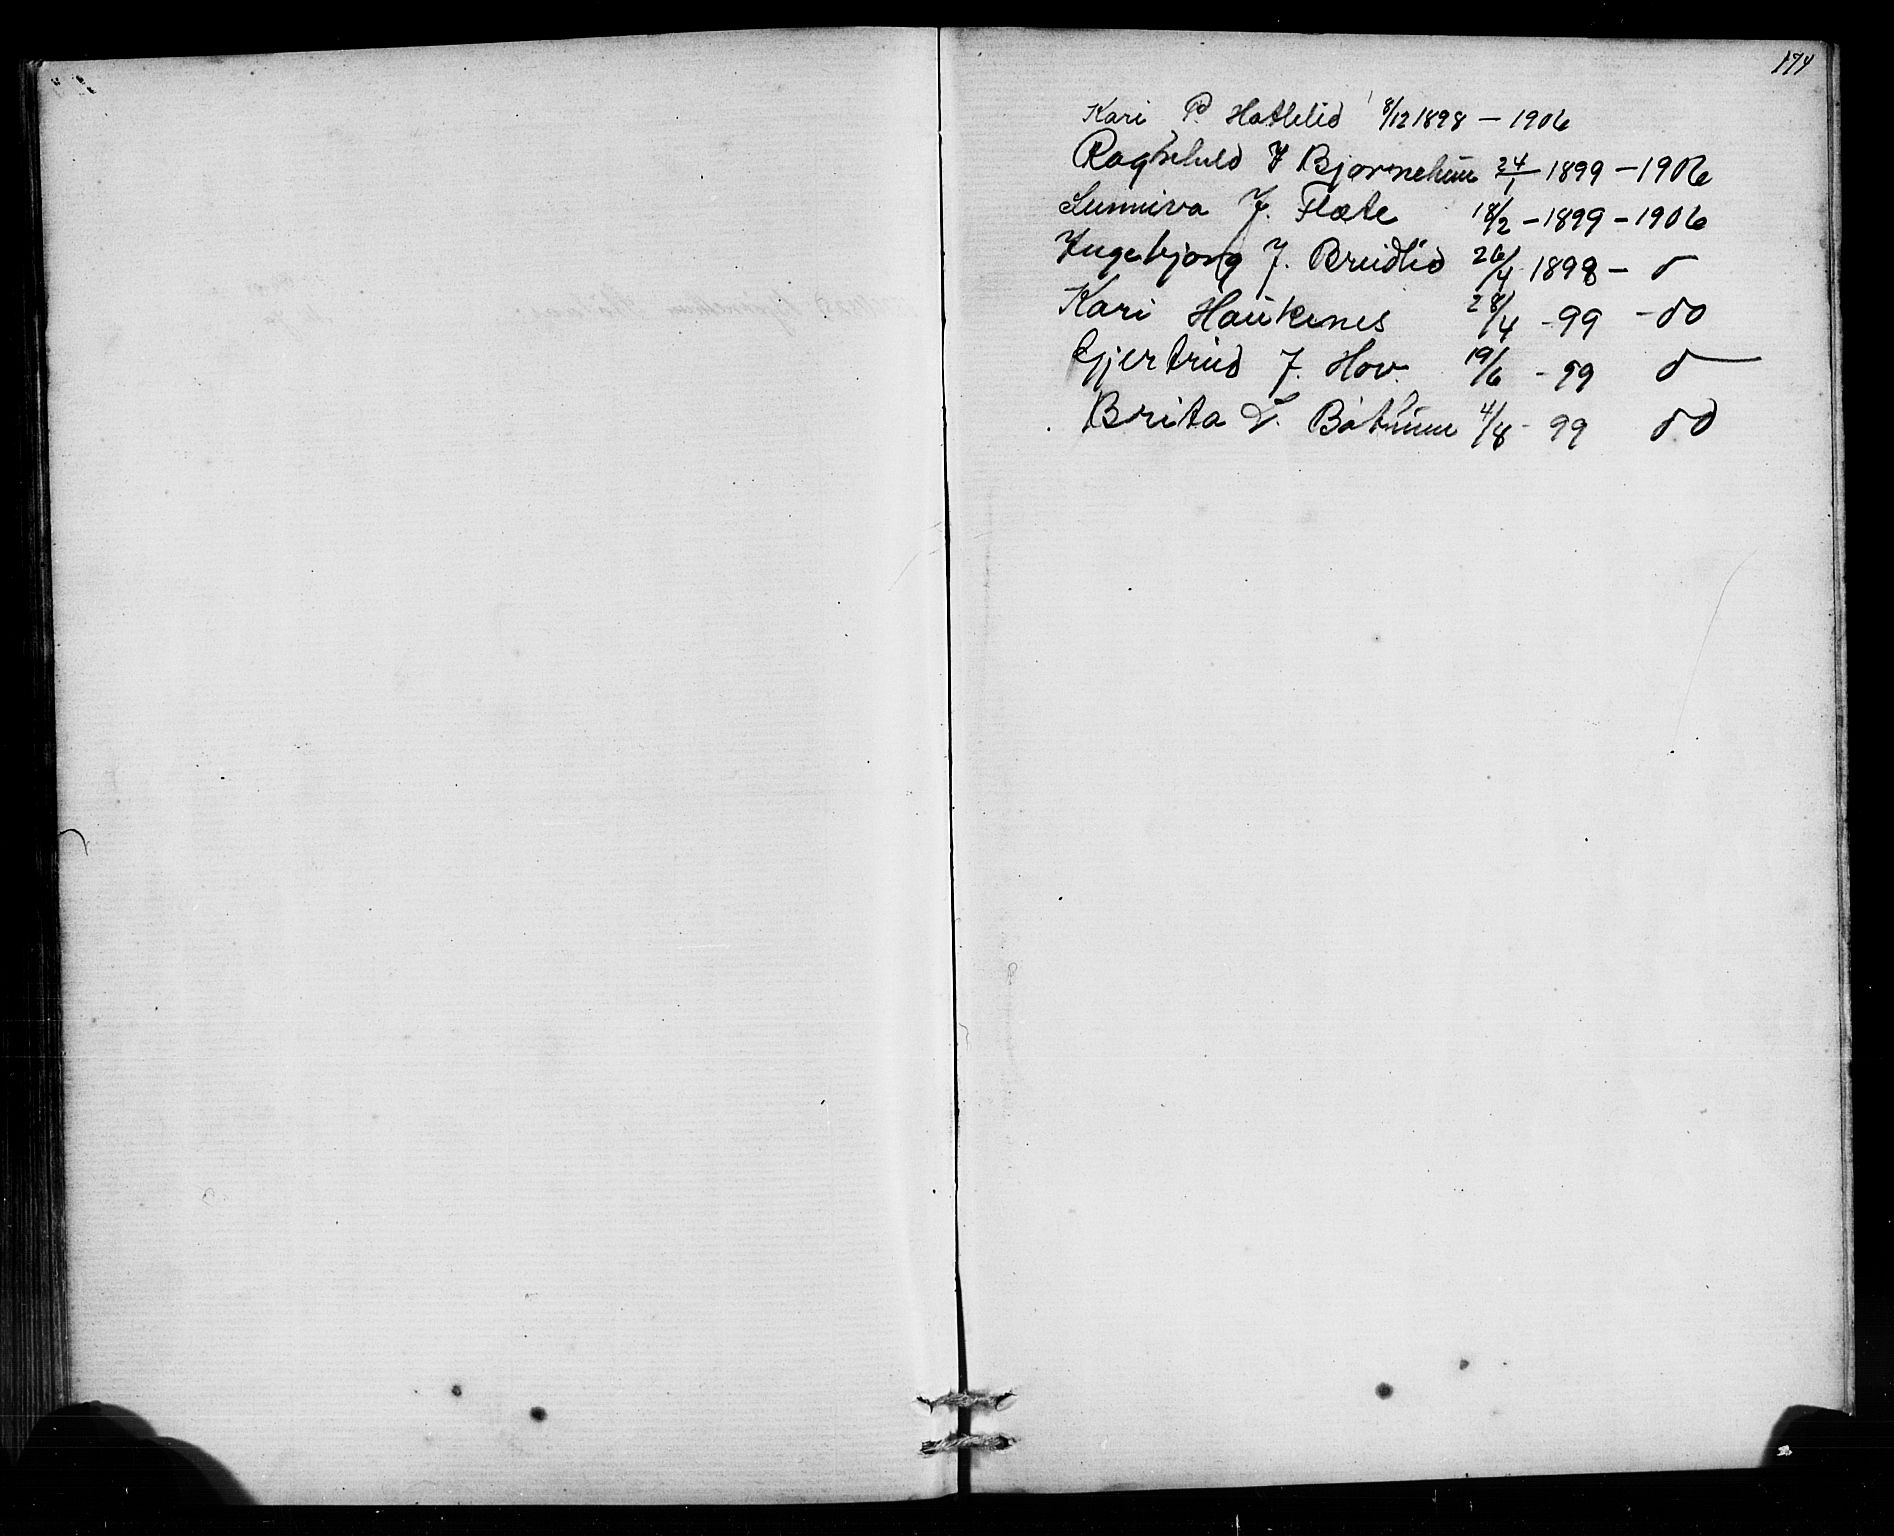 174
Kari P. Hatlelid 8/12 1898 — 1906
Ragnhild J Bjørnehim 24/1 1899 — 1906
Sunniva J. Flæte 18/2 — 1899 — 1906
Ingebjørg J. Breidlid 26/4 1898 — d
Kari Haukenes 28/4 - 99 - do
Gjertrud J. Hov. 19/6 - 99 d
Brita L. Båtnun 4/8 - 99 do